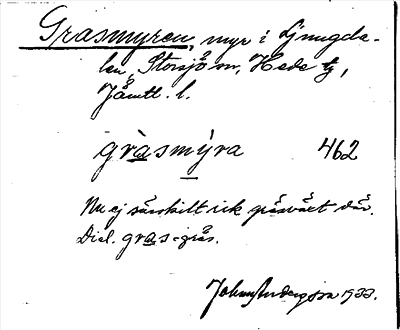 Grasmyren, myr i Ljungda-
len, Storsjö sn, Hede tg,
Jämtl. l.
gràsmýra 462
Nu ej särskilt rik gräsväxt där.
Dial. gras = gräs.
Johan Andersson 1933.